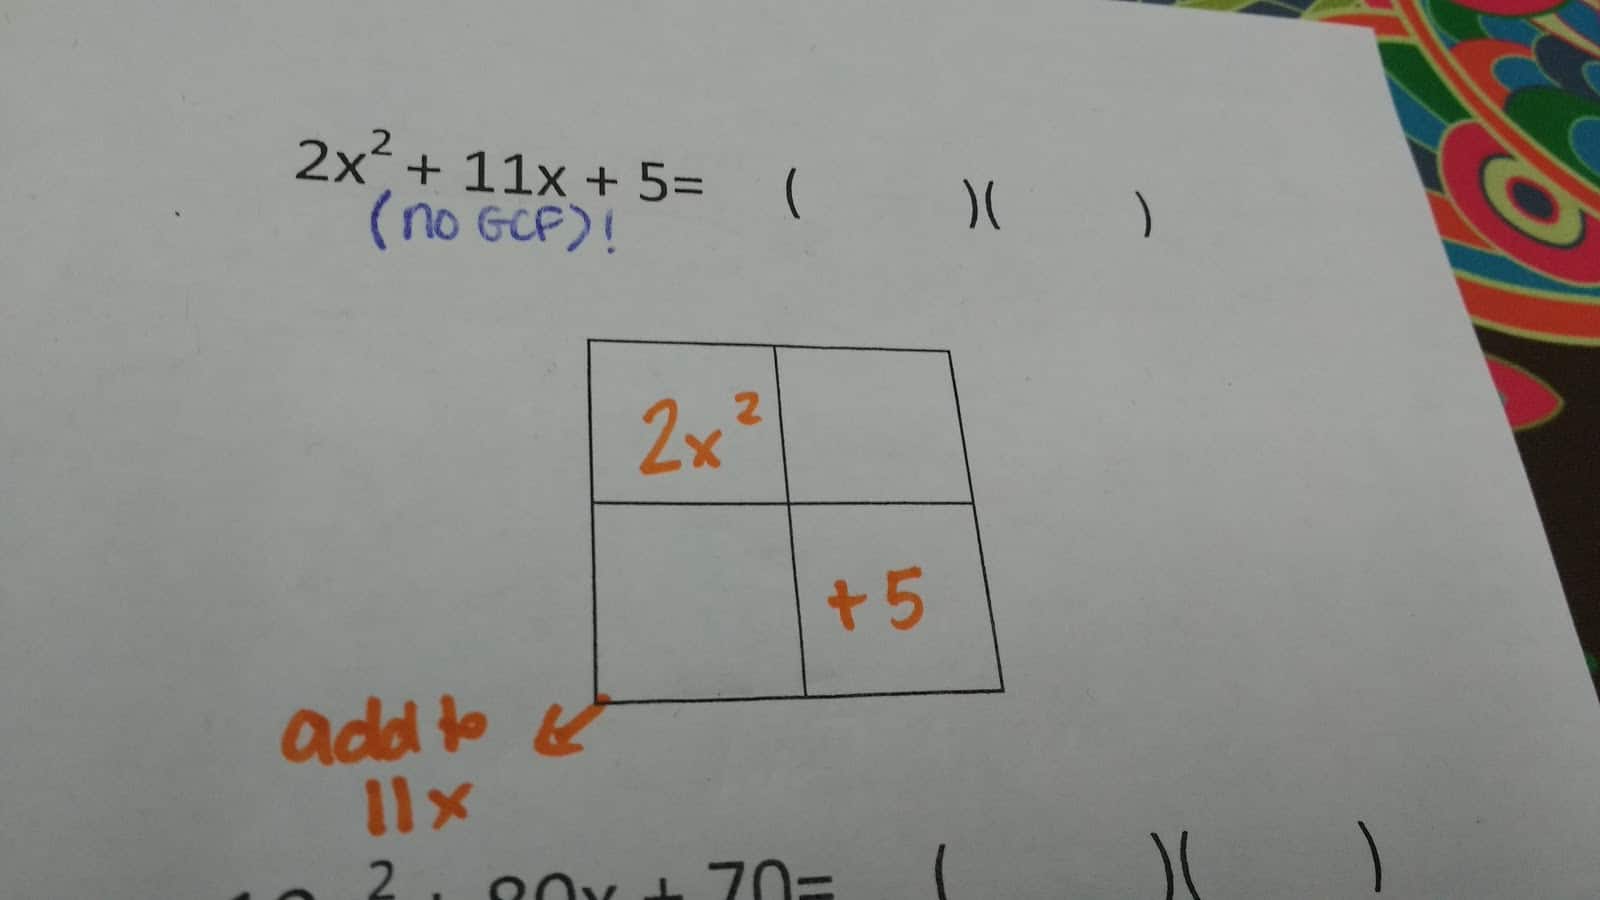 2x² + 11x + 5= (    )(    )
(no GCF)!
2x²
+5
add to
11x
² + 80x + 70= (    )(    )